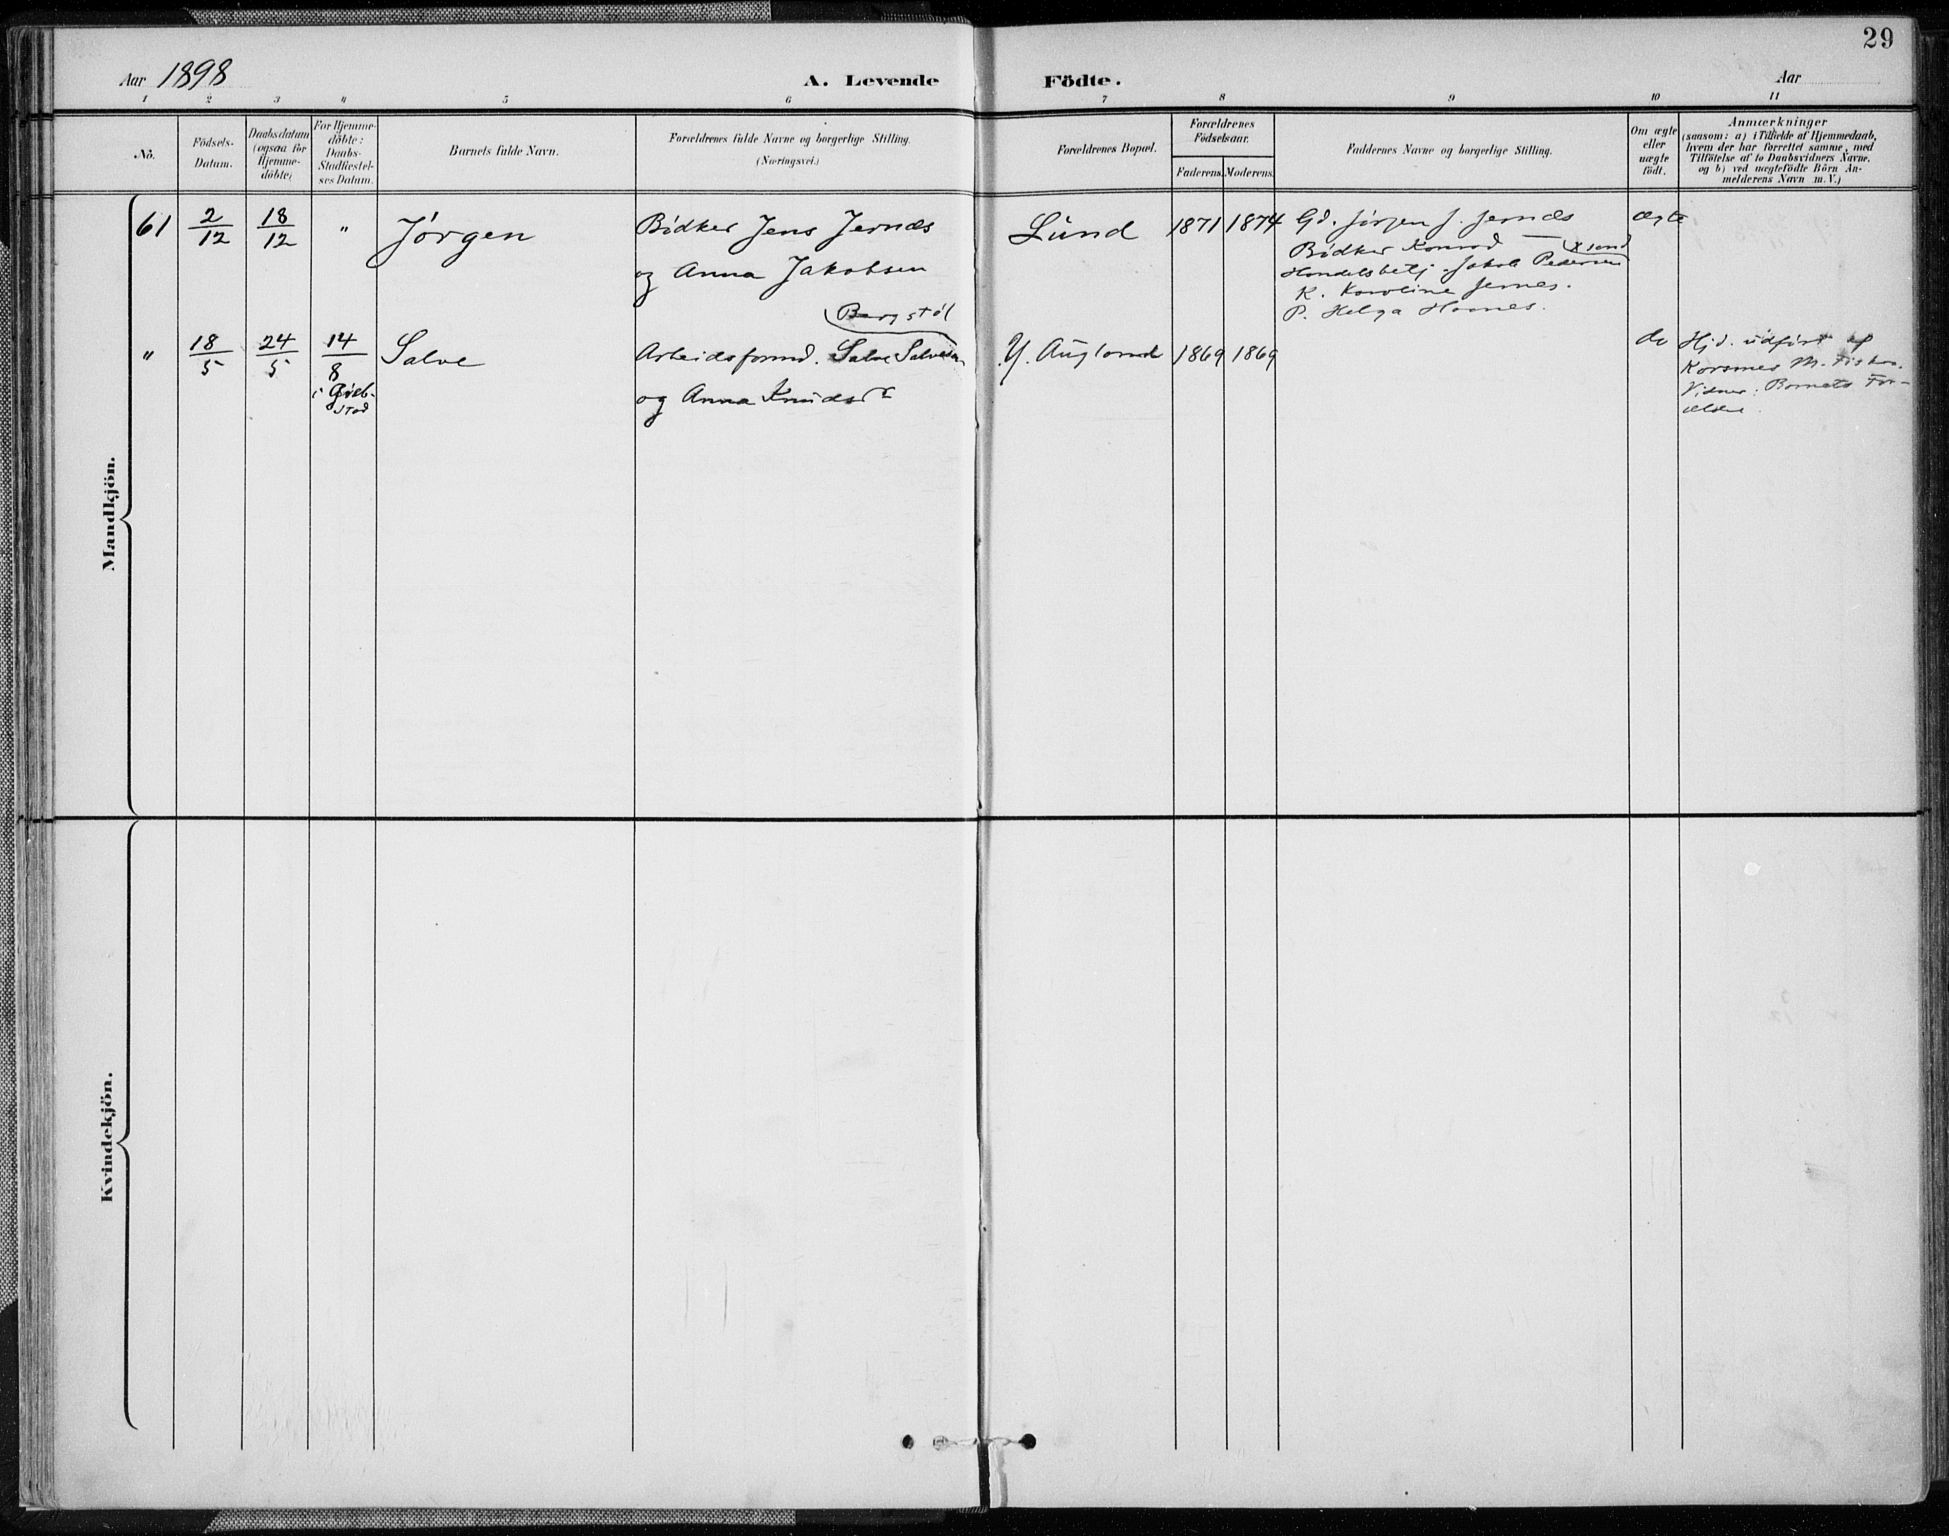 29
Aar 1898
A. Levende Födte.
Aar
1 2 3 4 5 6 7 8 9 10 11
No.
Födsels-
Datum.
Daabsdatum
(ogsaa for
Hjemme-
döbte)
For Hjemme-
döbte:
Daabs-
Stadfæstel-
ses Datum.
Barnets fulde Navn.
Forældrenes fulde Navne og borgerlige Stilling.
(Næringsvei.)
Forældrenes Bopæl.
Forældrenes
Födselsaar.
Faderens. Moderens.
Faddernes Navne og borgerlige Stilling.
Om ægte
eller
uægte
født.
Anmærkninger
(saasom: a) i Tilfælde af Hjemmedaab,
hvem der har forrettet samme, med
Tilföielse af to Daabsvidners Navne,
og b) ved uægtefödte Börn An-
melderens Navn m. V.)
Mandkjön.
61 2/12 18/12 " Jørgen
Bødker Jens Jernæs
og Anna Jakobsen
Lund 1871 1874
Gd. Jørgen J. Jernæs
Bødker Konrad — X sand
Handelsbetj. Jakob Pedersen
K. Karoline Jernes.
P. Helga Haanes.
ægte
" 18/5 24/5 14/8
Salve
Bergstøl
Arbeidsformd. Salve Salvesen
og Anna Knudsr
Y. Augland 1869 1869
do
Hjd. udført af
Korsmes M.
Vidner: Barnets For-
ældre.
Kvindekjön.